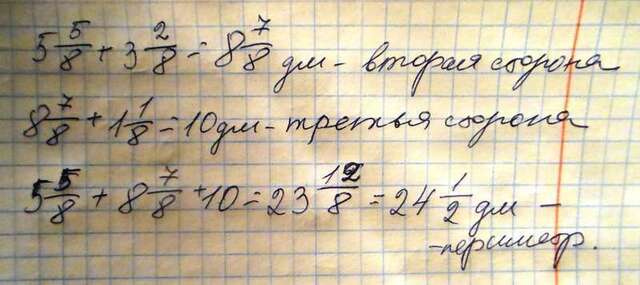 5 5/8 + 3 2/8 = 8 7/8 дм - вторая сторона
8 7/8 + 1 1/8 = 10 дм - третья сторона
5 5/8 + 8 7/8 + 10 = 23 12/8 = 24 1/2 дм -
- периметр.